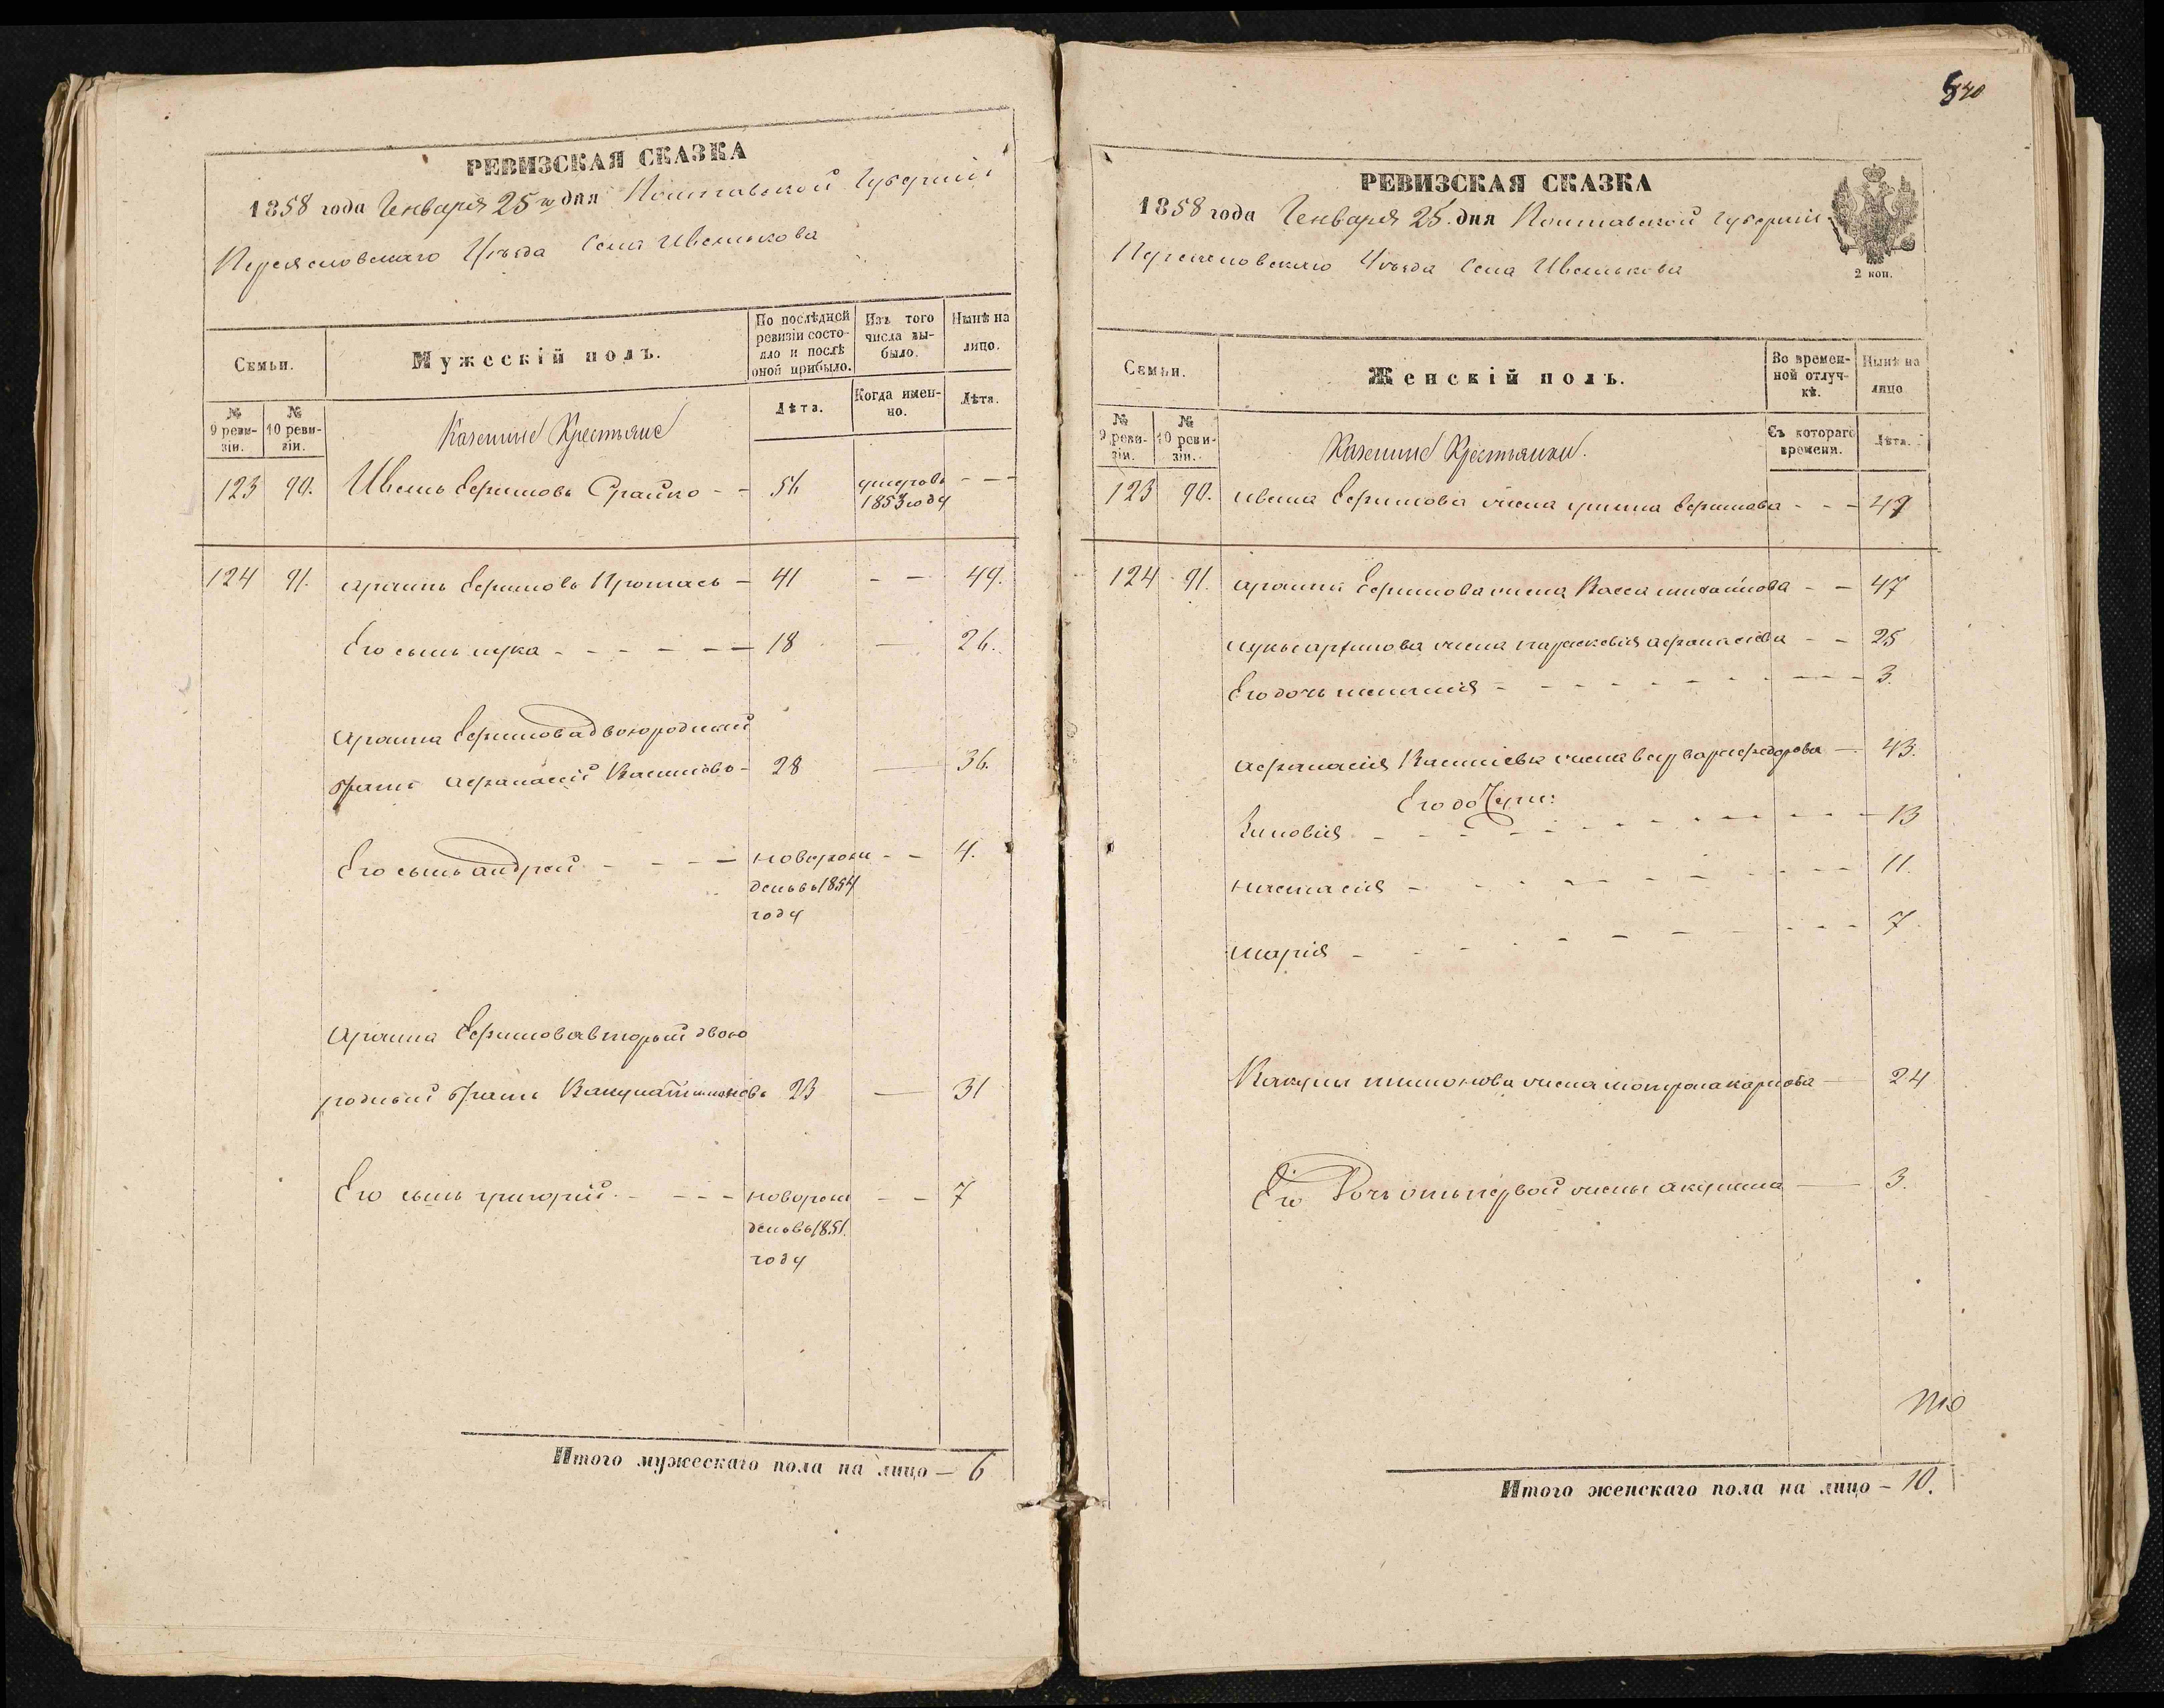 РЕВИЗСКАЯ СКАЗКА
1858 года Генваря 25 го дня Полтавской Губернiи
Переясловскаго Уѣзда Села Ивалькова
Семьи.
Мужескiй полъ.
По послѣдней ревизiи состояло и послѣ оной прибыло.
Изъ того числа выбыло.
Нынѣ на лицо.
№ 9 ревизiи.
№ 10 ревизiи.
Казенные Крестьяне
Лѣта.
Когда именно.
Лѣта.
123 90. Ефимовъ - - 56 умеръ въ 1853 году - - -
124 91. Ефимовъ - 41 - - 49.
Его сынъ лука - - - - - - 18 — 26.
Ефимова двоюродный
братъ афанасiй - 28 — 36.
Его сынъ андрей - - - - новорож - - 4.
денъ въ 1854
году
Ефимова вторый двою
родный братъ Вакула 23 — 31
Его сынъ григорiй - - - - новорож - - 7
денъ въ 1851.
году
Итого мужескаго пола на лицо — 6
840
РЕВИЗСКАЯ СКАЗКА
1858 года Генваря 25. дня Полтавской Губернiи
Переясловскаго Уѣзда Села Ивалькова
2 коп.
Семьи.
Женскiй полъ.
Во временной отлучкѣ.
Нынѣ на лицо
№ 9 ревизiи.
№ 10 ревизiи.
Казенные Крестьянки.
Съ котораго времени.
Лѣта.
123 90. Ефимова жена Ефимова - - - 49
124 91. Ефимова жена Васса михайлова - - 47
жена параскевiя афанасiева - - 25
Его дочь - - - - - 3.
афанасiя жена варвара федорова — 43.
Его дочери:
Зиновiя - - - - - 13
настасiя - - - - - 11.
марiя - - - - - 7
Вакулы жена карпова — 24
Его Дочь отъ первой жены акулина — 3.
Итого женскаго пола на лицо — 10.